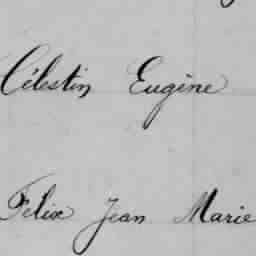 Célestin Eugène
Felix Jean Marie